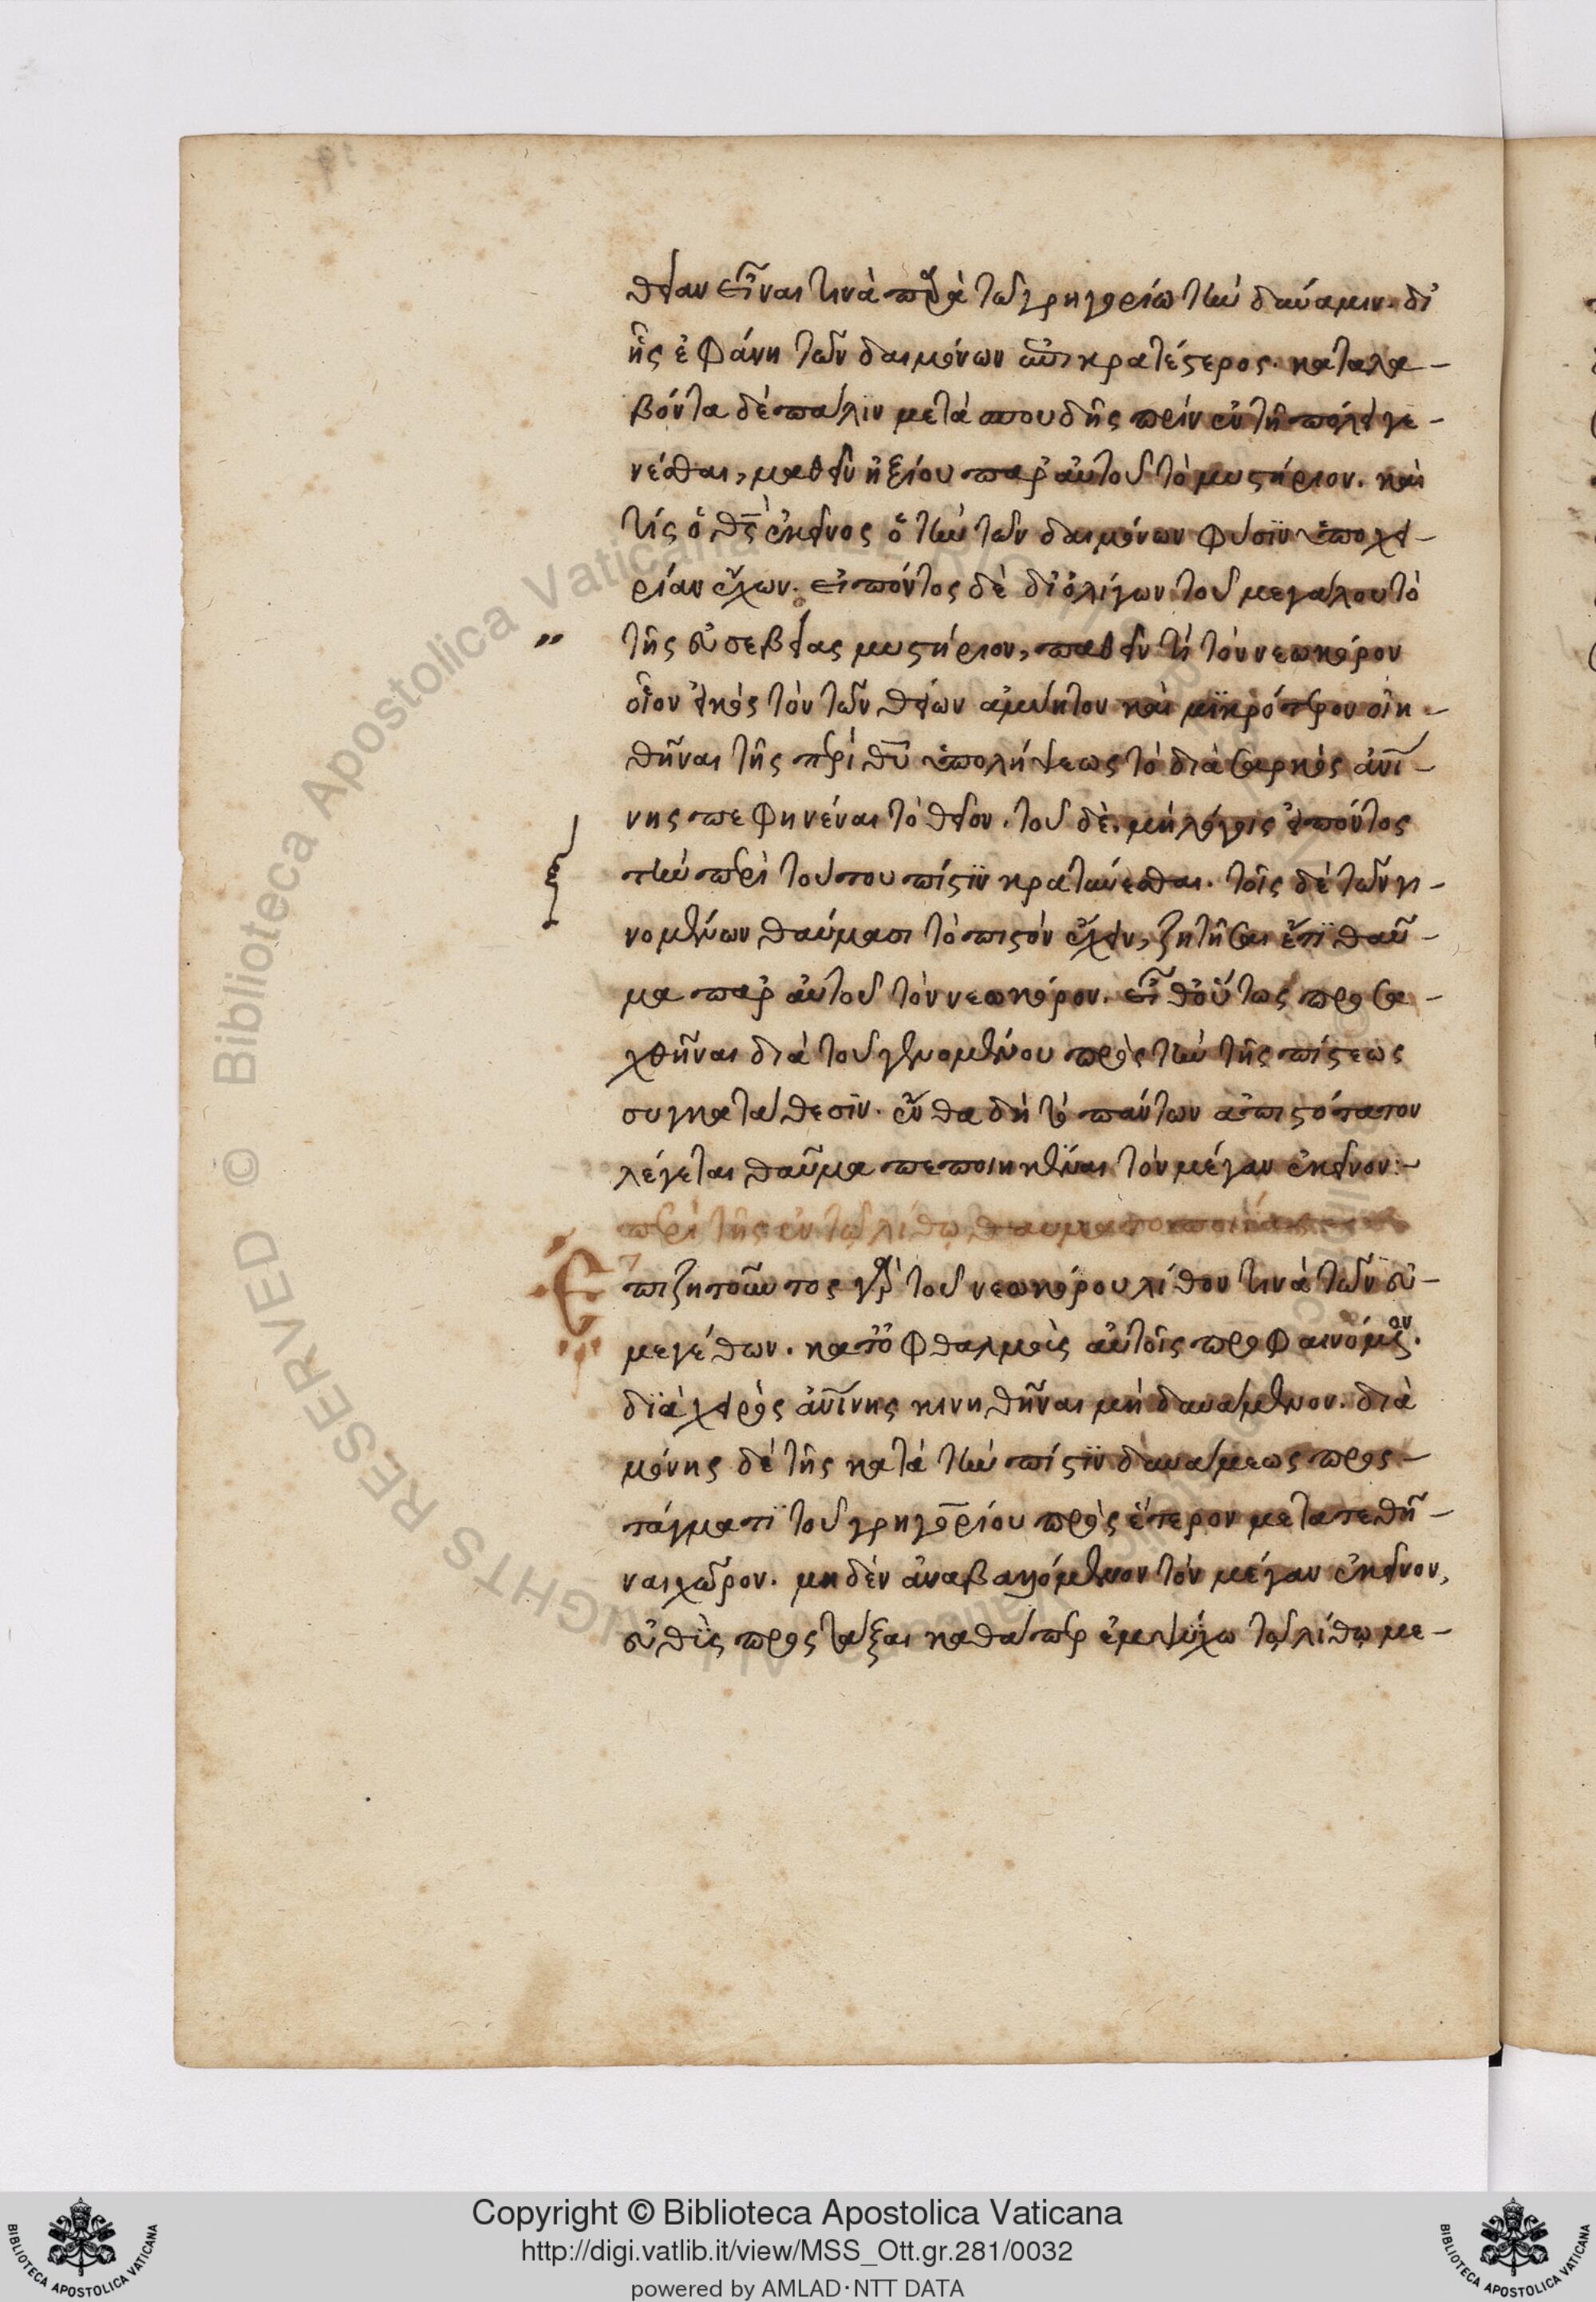 θείαν εἶναι τινὰ παρὰ τῶ γρηγορίω τὴν δύναμιν. δι'
ἧς ἐφάνη τῶν δαιμόνων ἐπικρατέστερος. καταλα-
βόντα δὲ πάλιν μετὰ σπουδῆς πρὶν ἐν τῆ πόλει γε-
νέσθαι, μαθεῖν ἠξίου παρ' αὐτοῦ τὸ μυστήριον. καὶ
τίς ὁ θς ἐκεῖνος ὁ τὴν τῶν δαιμόνων φύσϊν ὑποχει-
ρίαν ἔχων. εἰπόντος δὲ δι' ὀλίγων τοῦ μεγάλου τὸ
" τῆς εὐσεβείας μυστήριον, παθεῖν τί τὸν νεωκόρον
οἷον εἰκὸς τὸν τῶν θείων ἀμύητον καὶ μϊκρότερον οἰη-
θῆναι τῆς περὶ θυ ὑπολήψεως τὸ διὰ σαρκὸς ἀνί-
νης πεφηνέναι τὸ θεῖον. τοῦ δὲ. μὴ λόγοις εἰπόντος
τὴν περὶ τούτου πίστϊν κρατύνεσθαι. τοῖς δὲ τῶν γι-
νομένων θαύμασι τὸ πιστὸν ἔχειν, ζητῆσαι ἔτϊ θαῦ-
μα παρ' αὐτοῦ τὸν νεωκόρον. εἶθ' οὕτως προσα-
χθῆναι διὰ τοῦ γενομένου πρὸς τὴν τῆς πίστεως
συγκατάθεσϊν. ἔνθα δὴ τὸ πάντων ἀπιστότατον
λέγεται θαῦμα πεποιηκέναι τὸν μέγαν ἐκεῖνον:-
περὶ τῆς ἐν τῶ λίθω θαυματοποιίας
Επιζητοῦντος γὰρ τοῦ νεωκόρου λίθον τινὰ τῶν εὐ-
μεγέθων. κατ' ὀφθαλμοὺς αὐτοῖς προφαινόμενον.
δϊὰ χειρὸς ἀνίνης κινηθῆναι μὴ δυνάμενον. διὰ
μόνης δὲ τῆς κατὰ τὴν πίστϊν δυνάμεως προς-
τάγματϊ τοῦ γρηγορίου πρὸς ἕτερον μετατεθῆ-
ναι χῶρον. μηδὲν ἀναβαλλόμενον τὸν μέγαν ἐκεῖνον,
εὐθὺς προςτάξαι καθάπερ ἐμψύχω τῶ λίθω με-
Copyright © Biblioteca Apostolica Vaticana
http://digi.vatlib.it/view/MSS_Ott.gr.281/0032
powered by AMLAD·NTT DATA